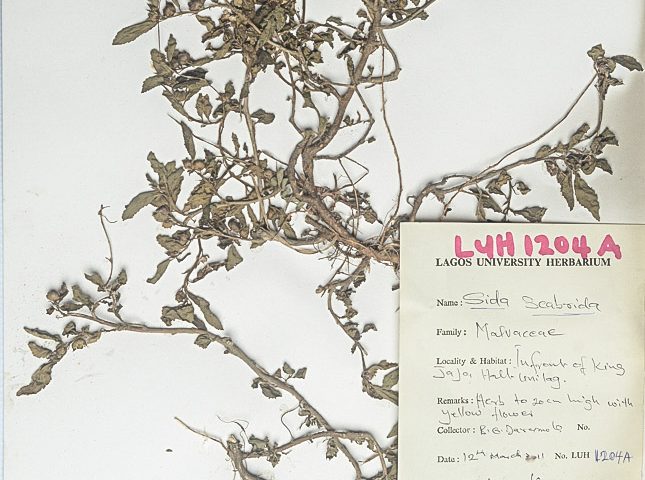 LUH 1204 A
LAGOS UNIVERSITY HERBARIUM
Name: Sida Scabrida
Family: Malvaceae
Locality & Habitat: Infront of King
Jaja Hall Unilag.
Remarks: Herb to 20cm high with
yellow flower
Collector: No.
Date: 12th March No. LUH 1204A